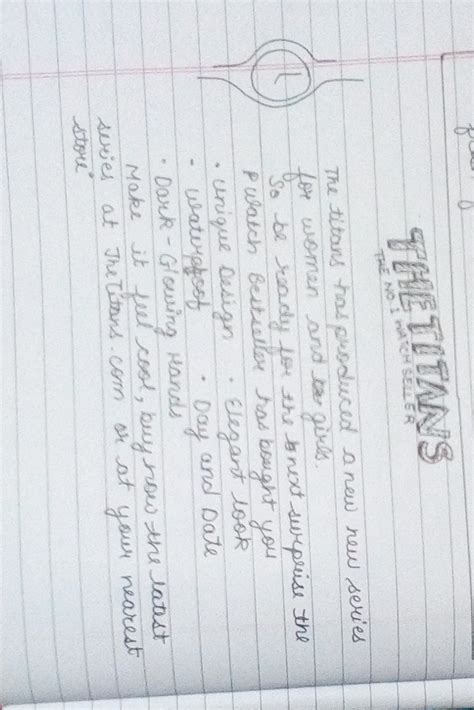 THE TITANS
THE NO.1 WATCH SELLER
The titans has produced a new new series
for women and girls.
So be ready for the next surprise the
watch Bestseller has bought you
• Unique Design • Elegant look
• Waterproof • Day and Date
• Dark-Glowing Hands
Make it feel cool, buy now the latest
series at TheTitans.com or at your nearest
store"